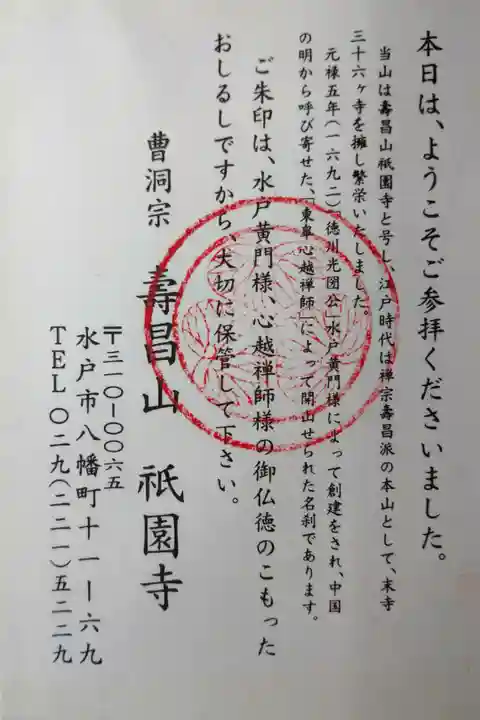 本日は、ようこそご参拝くださいました。
当山は壽昌山祇園寺と号し、江戸時代は禅宗壽昌派の本山として、末寺
三十六ヶ寺を擁し繁栄いたしました。
元禄五年(一六九二)「徳川光圀公」水戸黄門様によって創建をされ、中国
の明から呼び寄せた、「東皐心越禅師」によって開山せられた名刹であります。
ご朱印は、水戸黄門様、心越禅師様の御仏徳のこもった
おしるしですから、大切に保管して下さい。
曹洞宗 壽昌山 祇園寺
〒三一〇ー〇〇六五
水戸市八幡町十一ー六九
TEL〇二九(二二一)五二二九